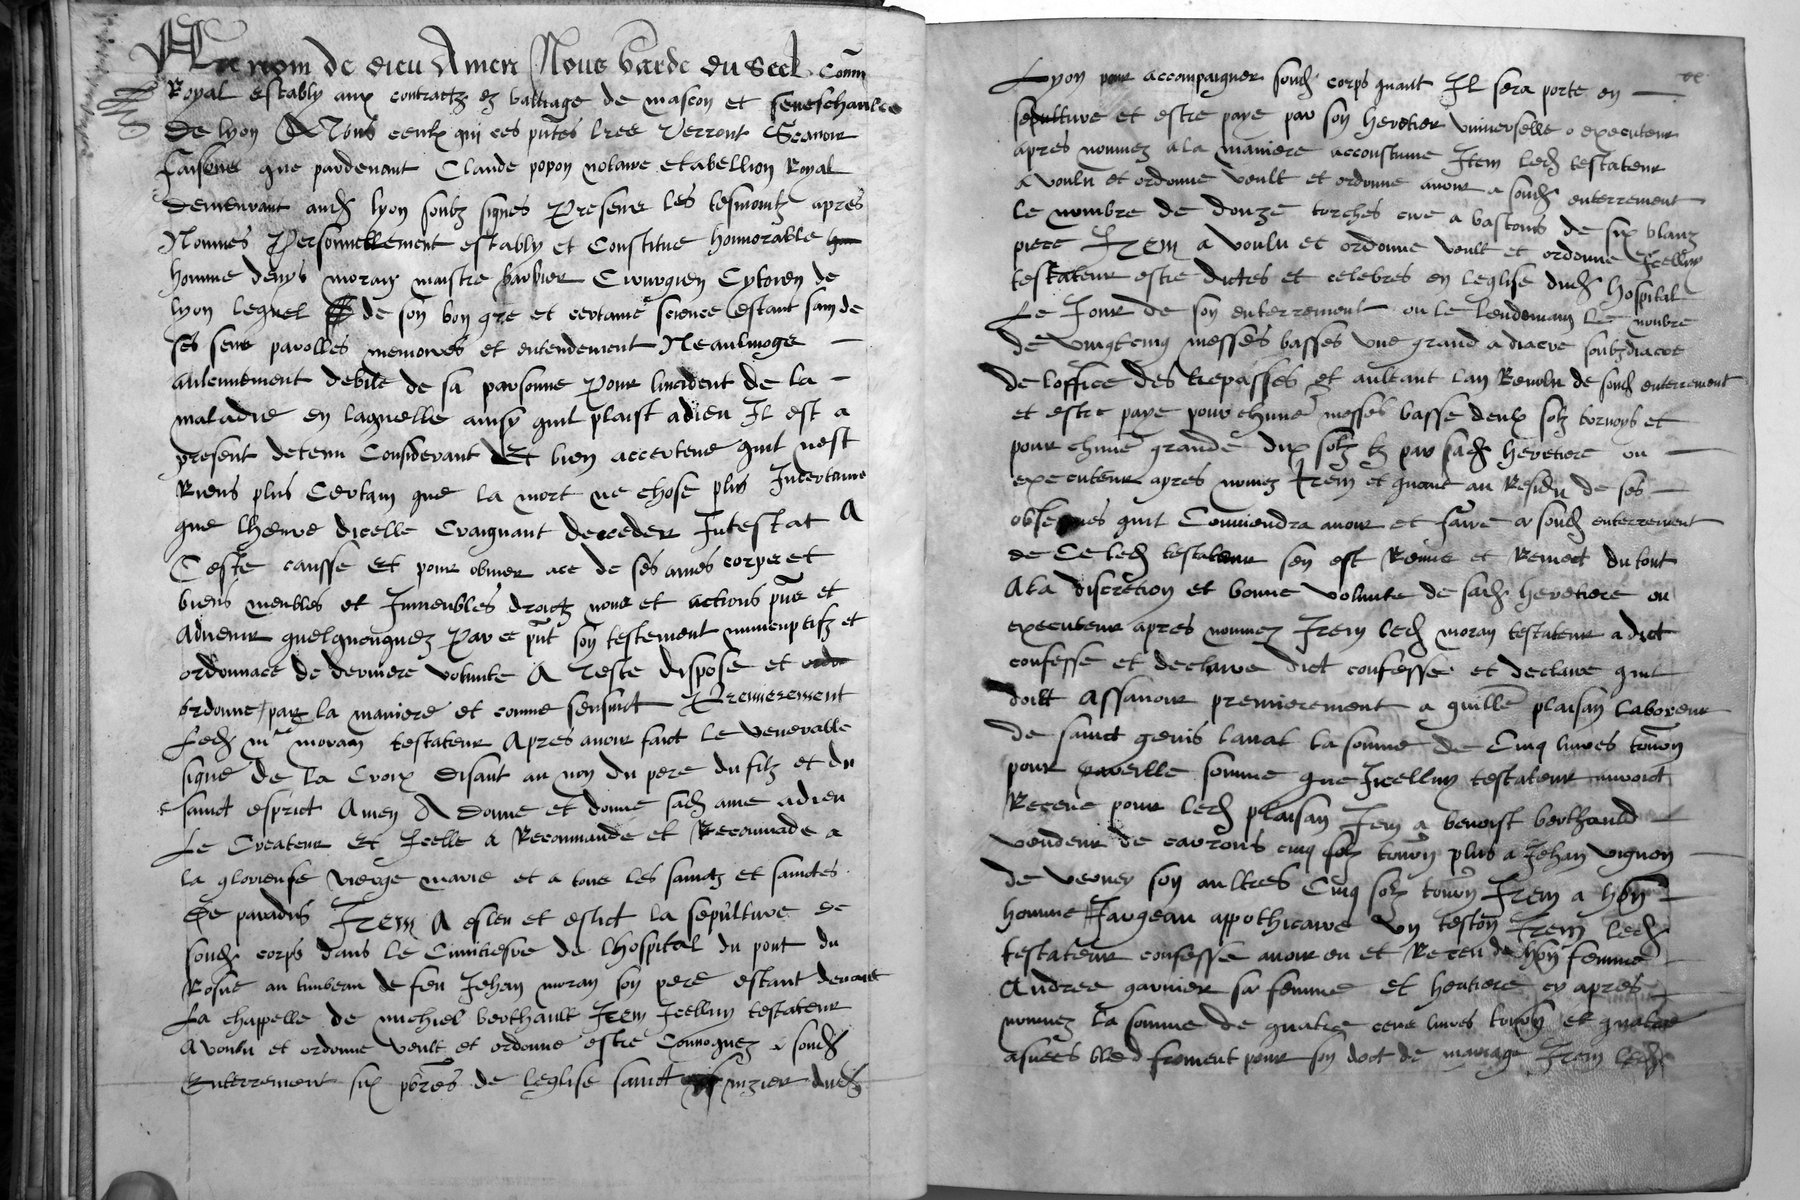 Au nom de dieu Amen Nous garde du Seel Comm
Royal estably aux contractz ez balliage de mascon et seneschaulcee
de lyon A tous ceulx qui ces pntes lres verront Scavoir
faisons que pardevant Claude popon notaire et abellion Royal
demeurant aud lyon soubz signes Presens les tesmoingtz apres
Nommes Personnellement estably et Constitue honnorable
homme denys moran maistre barbier Cirurgien Cytoien de
lyon lequel de son bon gre et certaine science estant sain de
ses sens parolles memoires et entendement Neaulmoge
aulcunement debile de sa parsonne Pour lincident de la
maladie en laquelle ainsy quil plaist a dieu Il est a
present detenu Considerant Et bien accertene quil nest
Riens plus Certain que la mort ne chose plus Incertaine
que lheure dicelle Craignant deceder Intestat A
Ceste causse Et pour obvier ace de ses ames corps et
biens meubles et Inmeubles droictz noms et actions pns et
Advenir quelquonquez Par ce pnt son testement nuncuptifz et
ordonnace de derniere volunte A Teste dispose et ordo
ordonne par la maniere et comme sensuict Premierement
Led mr moran testateur Apres avoir faict le venerable
signe de la Croix disant au non du pere du filz et du
sainct esprict Amen A donne et donne sad ame a dieu
Le Createur Et Icelle a Recommande et Recommade a
la glorieuse vierge marie et a tous les sainctz et sainctes
De paradis Item A esleu et eslict la sepulture de
soud corps dans le Cimitiesre de lhospital du pont du
Rosne au tumbeau de feu Jehan moran son pere estant devant
La chappelle de michiel berthault Item Icelluy testateur
A voulu et ordonne veult et ordonne estre Convoquez a soud
Enterrement six pbres de leglise sainct nizier dud
Lyon pour accompaigner soud corps quant Il sera porte en
sepulture et estre paye par son heretier universelle o executeur
apres nommez a la maniere accoustume Item led testateur
a voulu et ordonne veult et ordonne avoir a soud enterrement
le nombre de douze torches cire a bastons de six blancz
piece Item a voulu et ordonne veult et ordonne Icelluy
testateur estre dictes et celebres en leglise dud hospital
Le Jour de son enterrement ou le lendemain le nonbre
de vingtcinq messes basses une grand a diacre soubzdiacre
de loffice des trepasses et aultant lan Revolu de soud enterrement
et estre paye pour chune messes basse deux solz tornoys et
pour chune grande dix solz tz par sad heretiere ou
executeur apres nomez Item et quant au Residu de ses
obseques quil Conviendra avoir et faire a soud enterrement
de Ce led testateur sen est Remis et Remect du tout
A la discretion et bonne volunte de sad heretiere ou
executeur apres nommez Item led moran testateur a dict
confesse et declaire dict confesse et declaire quil
doibt Assavoir premierement a guille plaisan laboreur
de sainct genis laval la somme de Cinq livres tourn
pour pareille somme que Icelluy testateur avoict
Receue pour led plaisan Item a benoist berthauld
vendeur de cairons cinq solz tourn plus a Jehan vignon
de verney son aultres Cinq solz tourn Item a hon
homme Jaugeau appothicaire un teston Item led
testateur confesse avoir eu et Receu de hon femme
Andree garnier sa femme et heritiere cy apres
nommez la somme de quatre cens livres tourn et quatre
asnees bled froment pour son doct de mariage Item led